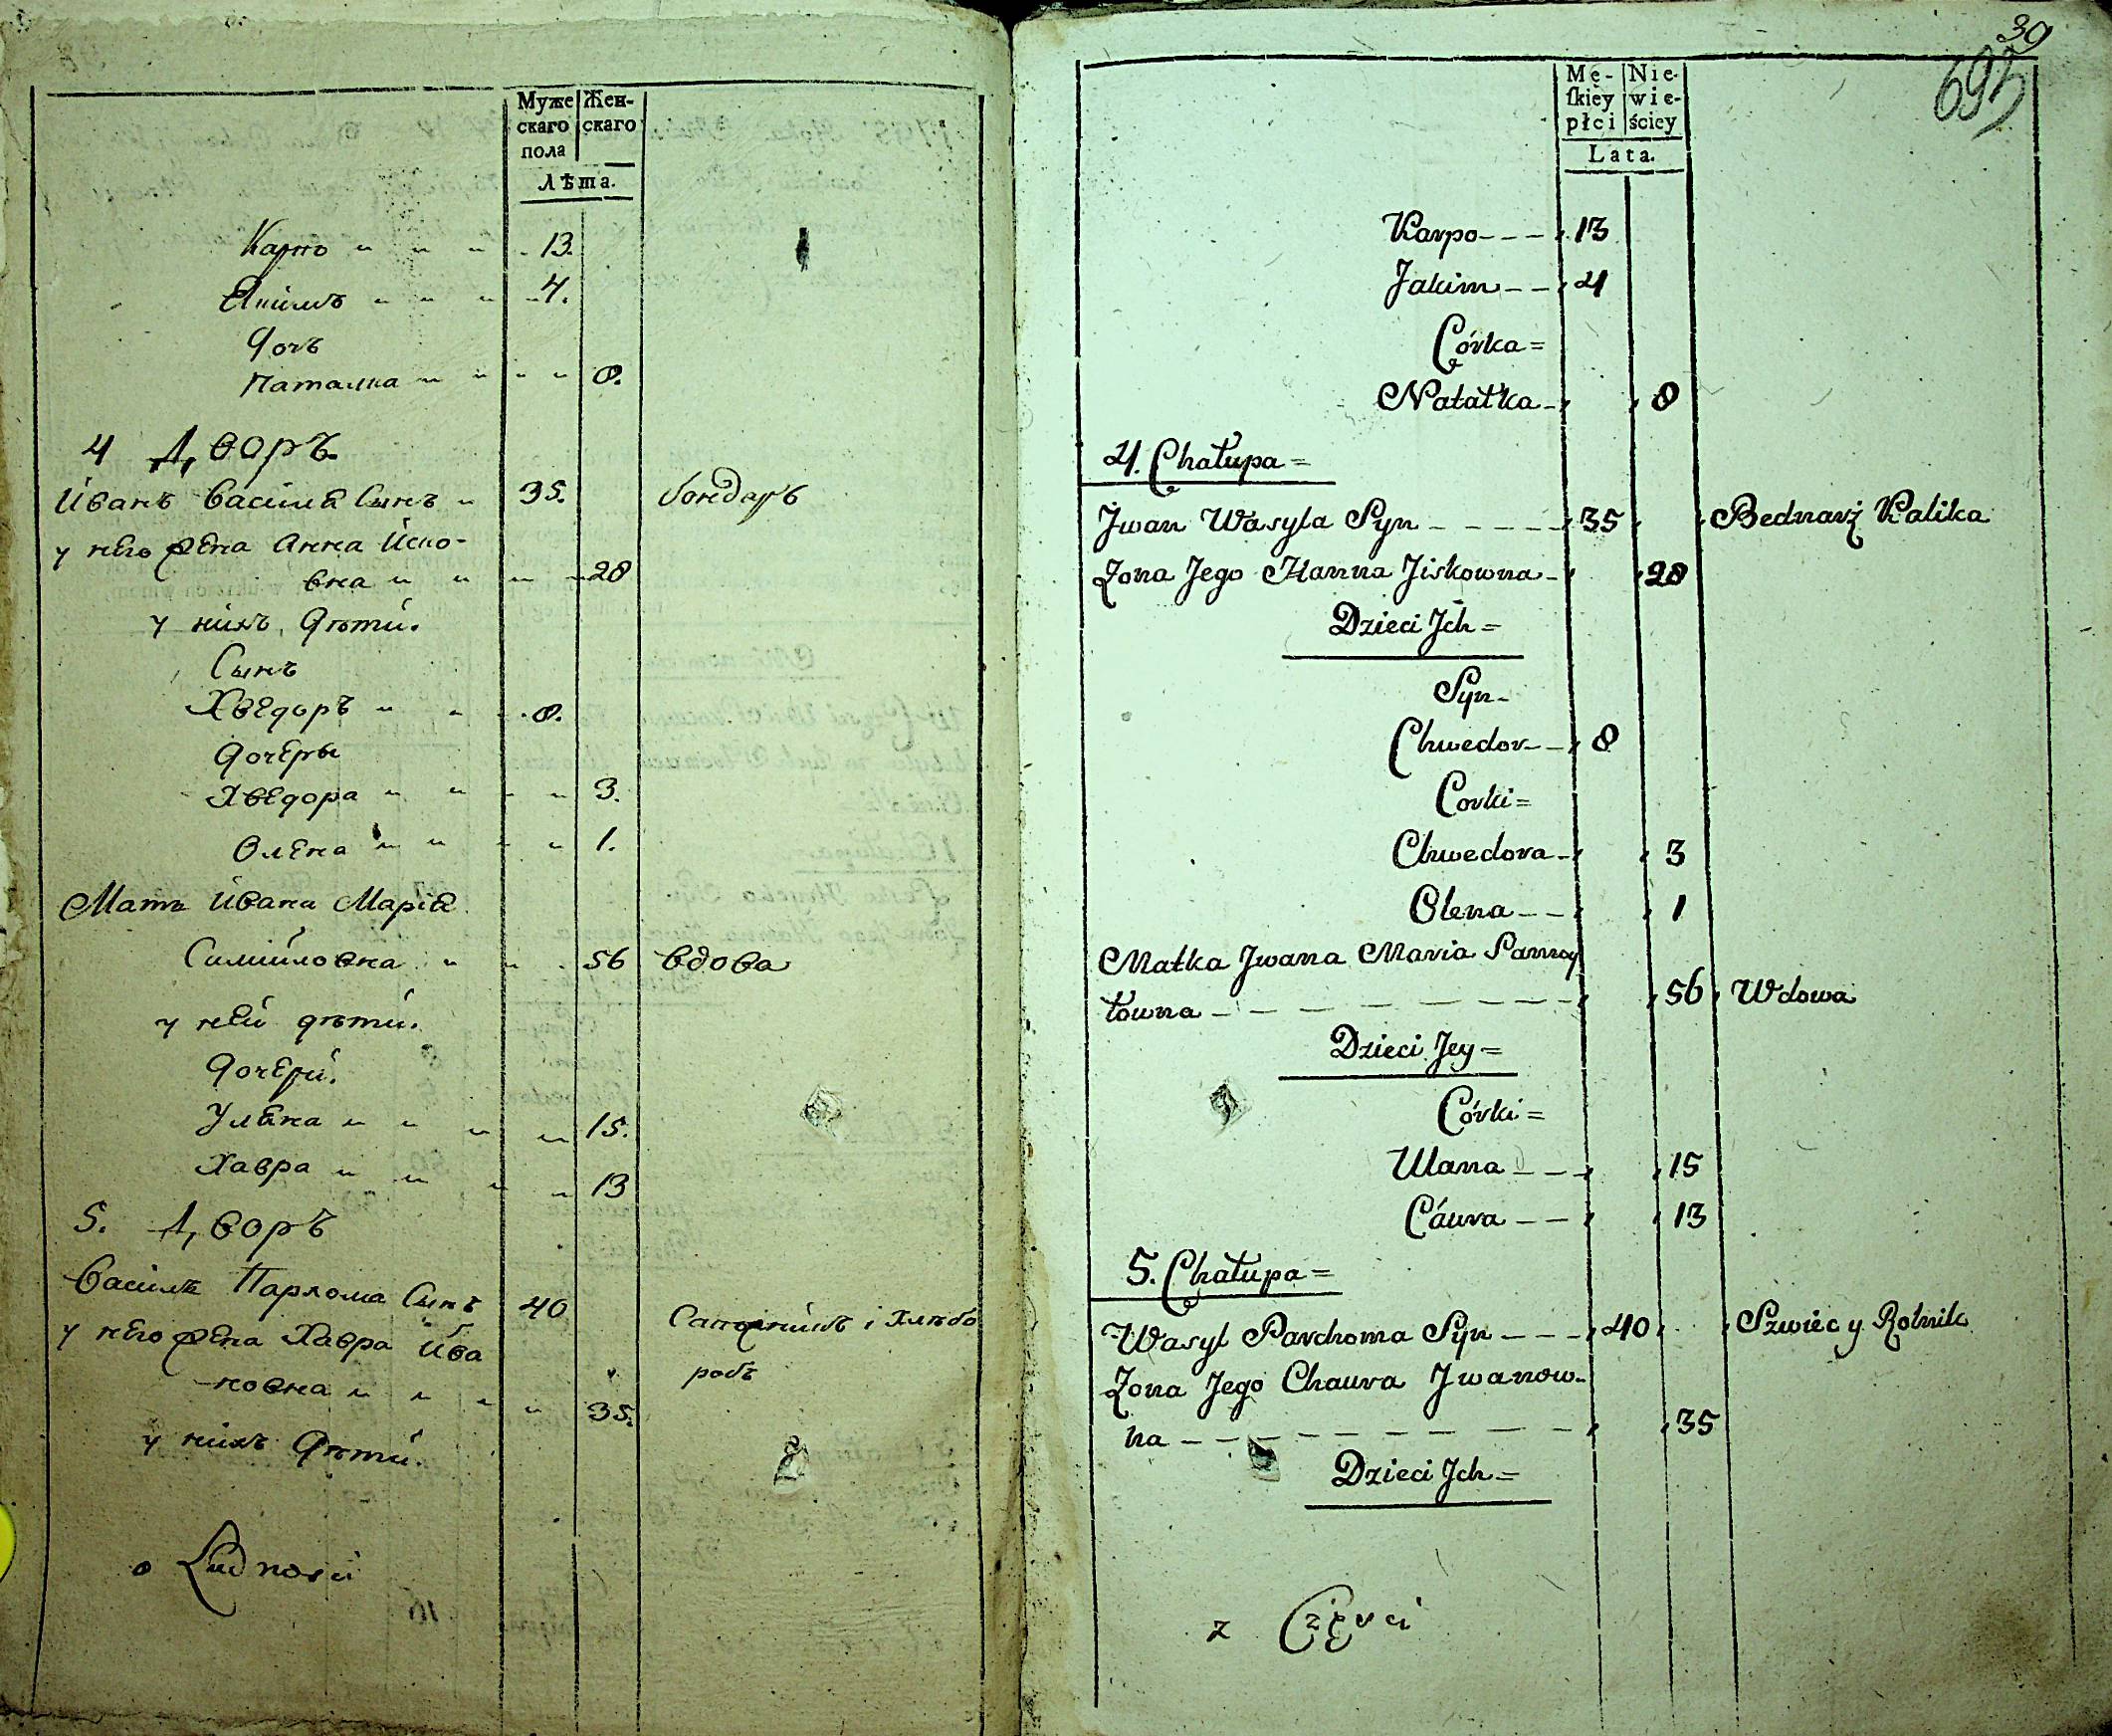 Муже Жен-
скаго скаго
пола
Лѣта.
Карпо 13.
Якимъ 4.
Дочъ
Наталка 8.
4 Дворъ.
Иванъ Василя Сынъ 35. бондаръ
у него жена Анна Иско-
вна 28
у нихъ дѣти.
Сынъ
Хведоръ 8.
дочеры
Хведора 3.
Олена 1.
Мать Ивана Марія
Самийловна 56 вдова
у ней дѣти.
дочери.
Уляна 15.
Хавра 13
5. Дворъ
Василь Пархома Сынъ 40 Сапожникъ і Хлѣбо
у него жена Хавра Ива
новна 35. робъ
у нихъ дѣти.
o Ludnosci
39
693
Mę- Nie-
ſkiey wie-
płci ściey
Lata.
Karpo 13
Jakim 4
Córka =
Natałka 8
4. Chałupa =
Jwan Wasyla Syn 35 Bednarz Kalika
Zona Jego Hanna Jiskowna 28
Dzieci Jch =
Syn
Chwedor 8
Corki =
Chwedora 3
Olena 1
Matka Jwana Maria Samoy
łowna 56 Wdowa
Dzieci Jey =
Córki =
Ulana 15
Cáuvra 13
5. Chałupa =
Wasyl Parchoma Syn 40 Szwiec y Rolnik
Zona Jego Chauvra Jwanow-
na 35
Dzieci Jch =
z Częsci